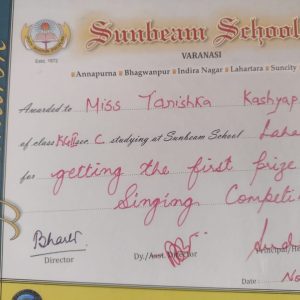 Sunbeam School
VARANASI
Estd. 1972
Annapurna Bhagwanpur Indira Nagar Lahartara Suncity
Awarded to Miss Tanishka Kashyap
of class sec C studying at Sunbeam School Laha
for getting the first prize
Singing Competi
Director
Dy./Asst. Director
Principal/He
Date : No